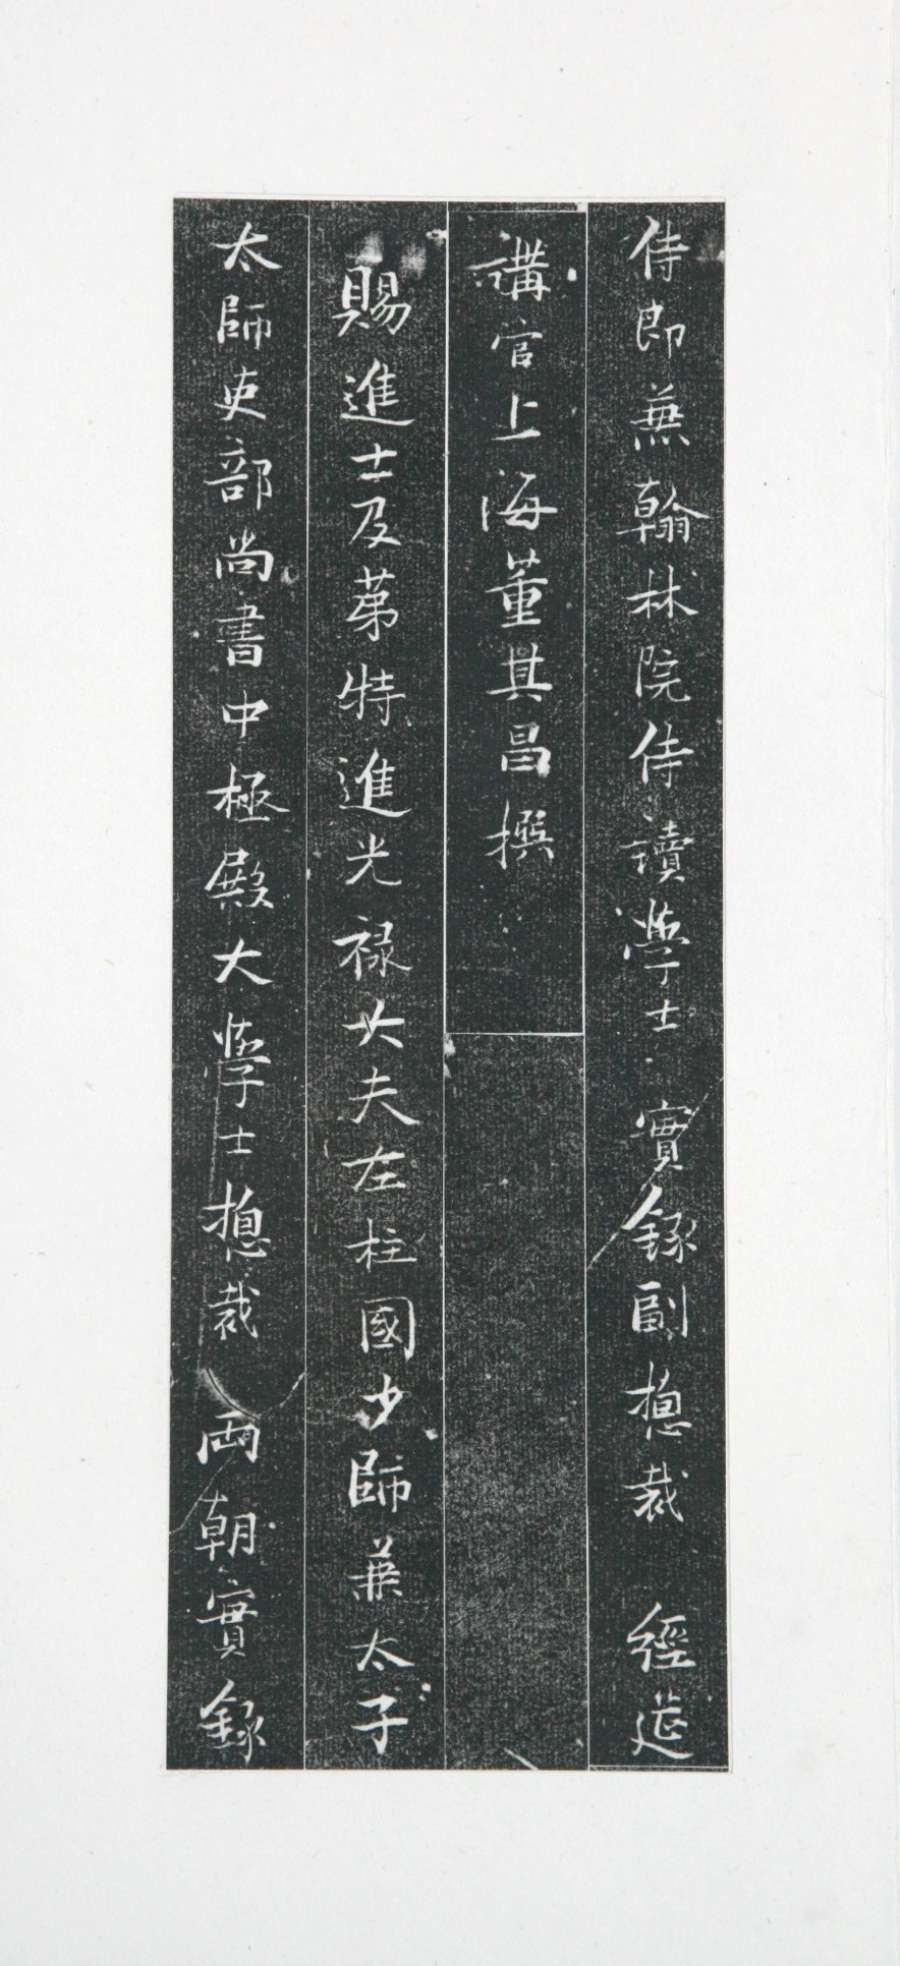 侍郎兼翰林院侍讀學士 實錄副揔裁 經筵
講官上海董其昌撰
賜進士及苐特進光禄大夫左柱國少師兼太子
太師吏部尚書中極殿大學士揔裁 兩朝實錄